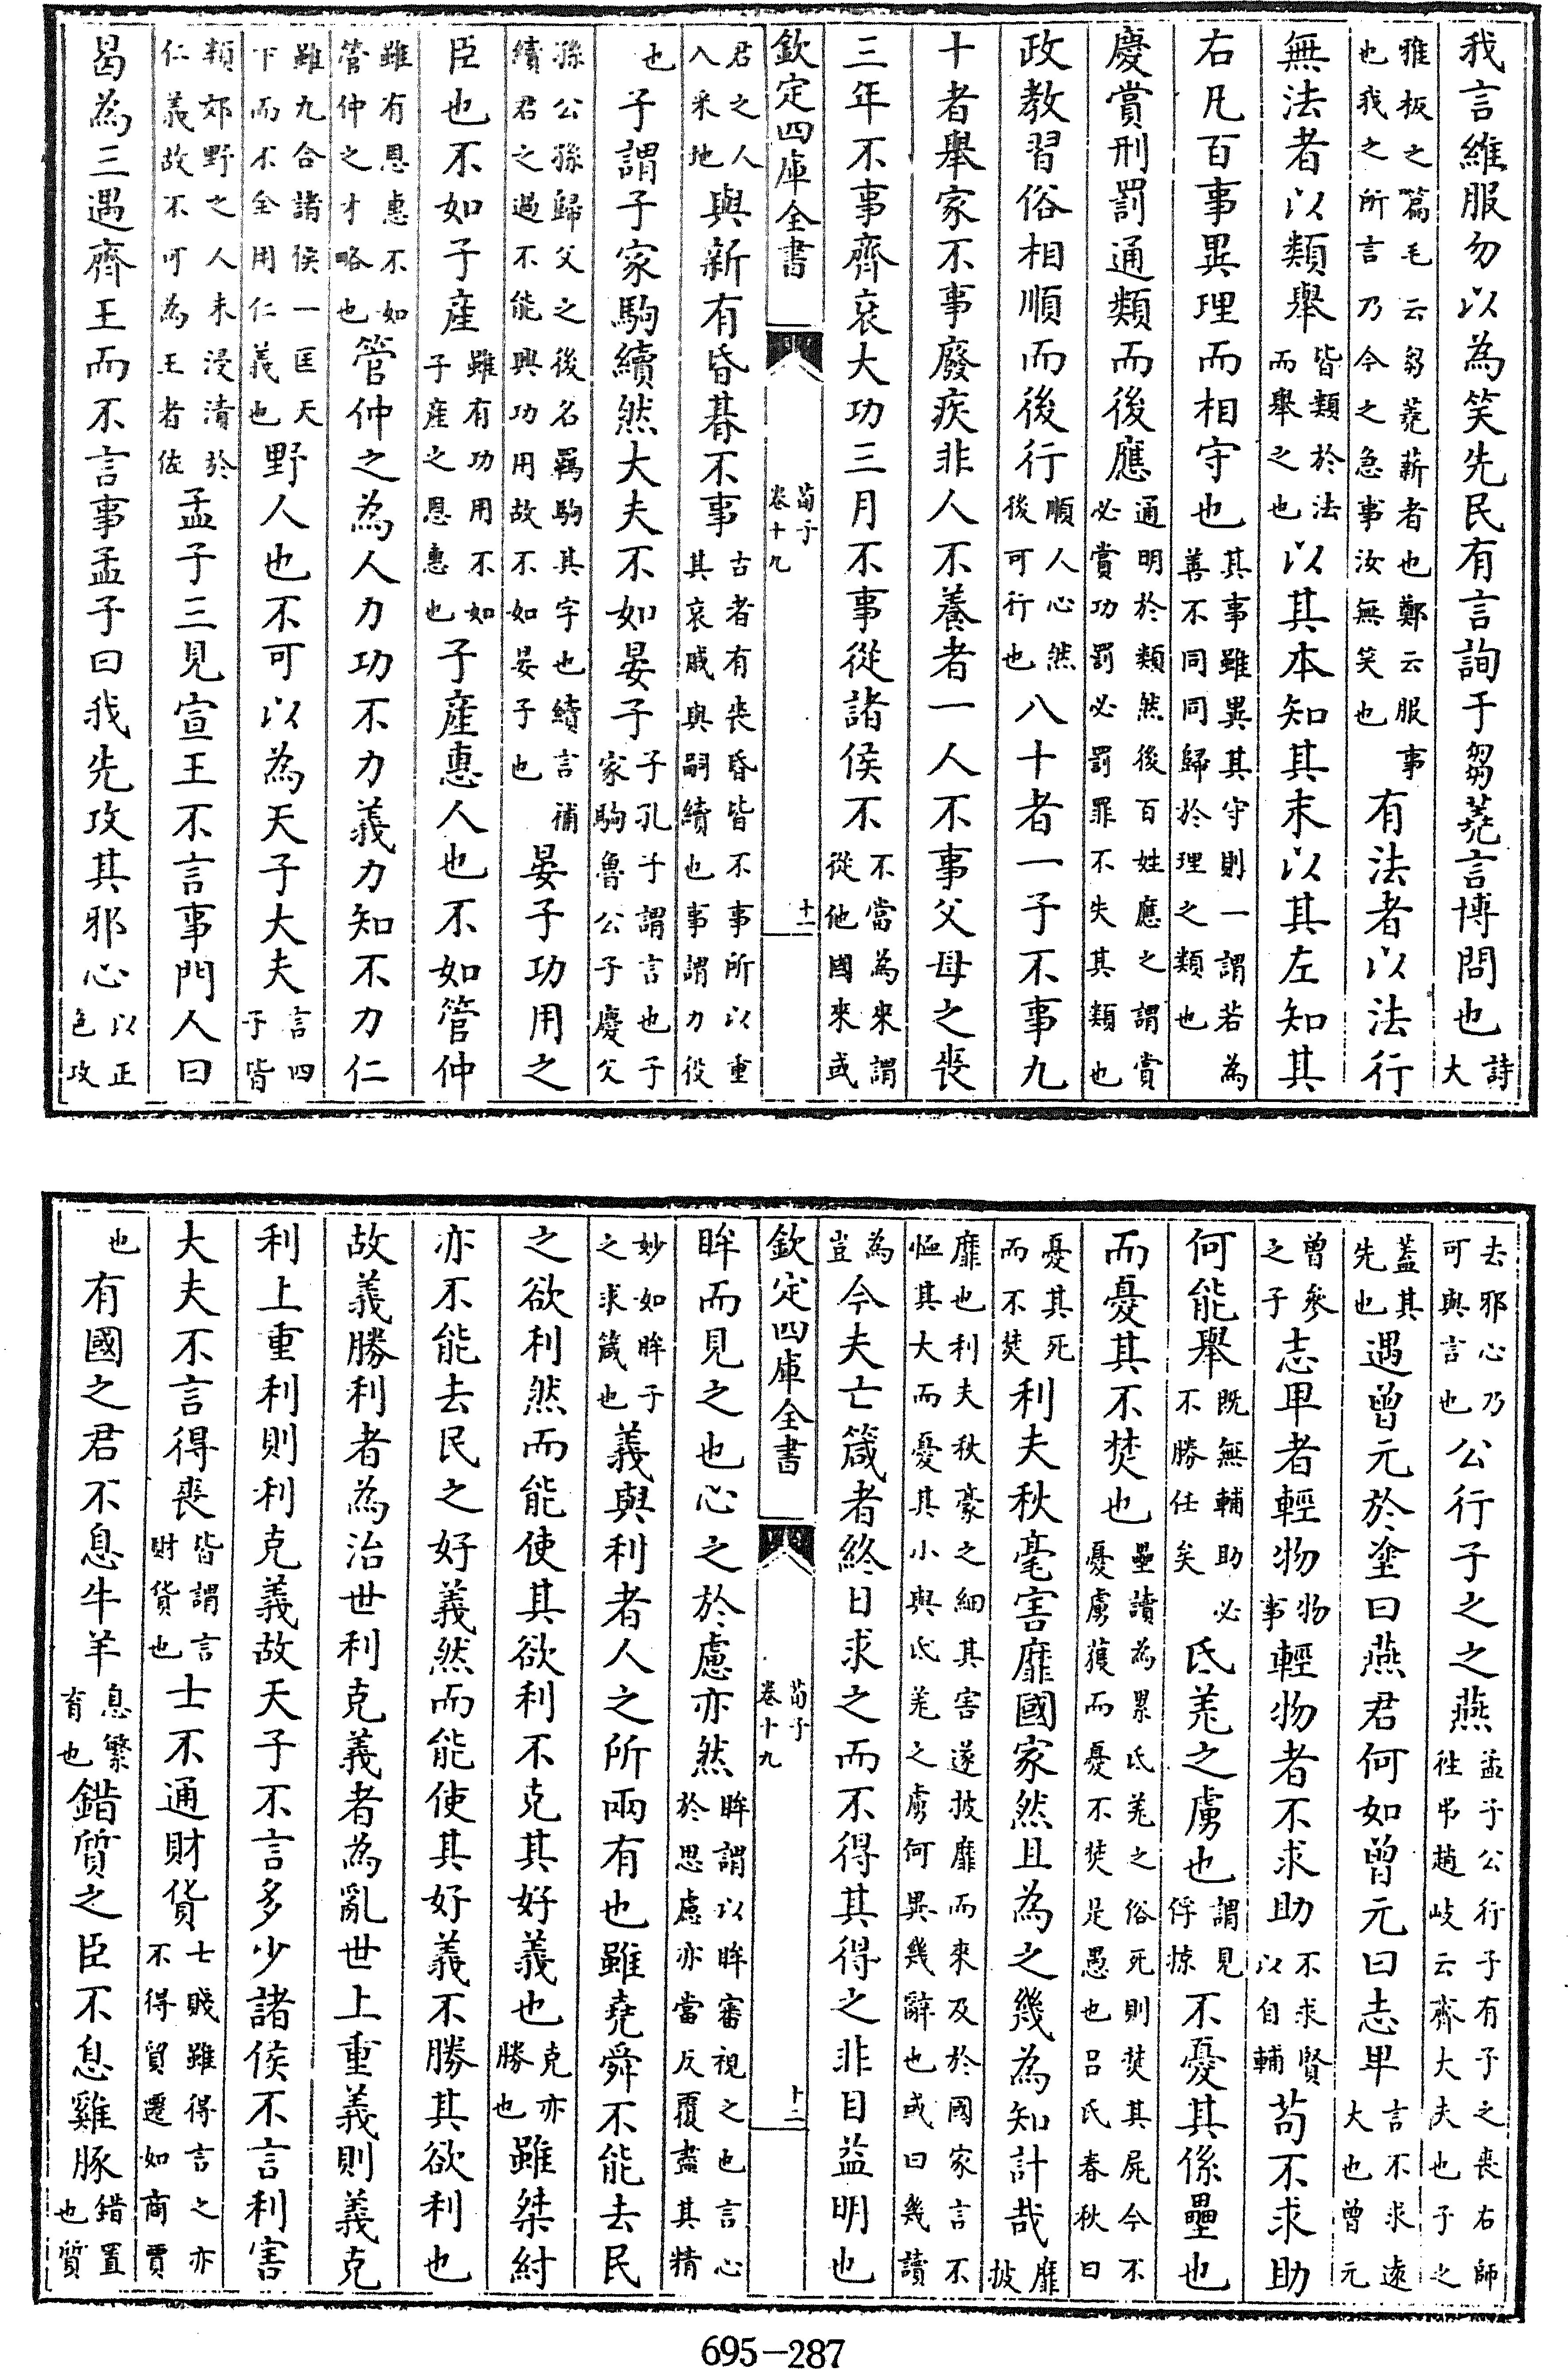 我言維服勿以為笑先民有言詢于芻蕘言博問也詩大
雅板之篇毛云芻蕘薪者也鄭云服事也我之所言乃今之急事汝無笑也有法者以法行
無法者以類舉皆類於法而舉之也以其本知其末以其左知其
右凡百事異理而相守也其事雖異其守則一謂若為善不同同歸於理之類也
慶賞刑罰通類而後應通明於類然後百姓應之謂賞必賞功罰必罰罪不失其類也
政教習俗相順而後行順人心然後可行也八十者一子不事九
十者舉家不事廢疾非人不養者一人不事父母之喪
三年不事齊衰大功三月不事從諸侯不不當為來謂從他國來或
欽定四庫全書 荀子卷十九 十一
君之人入采地與新有昏朞不事古者有喪昏皆不事所以重其哀戚與嗣續也事謂力役
也子謂子家駒續然大夫不如晏子子孔子謂言也子家駒魯公子慶父
孫公孫歸父之後名羈駒其字也續言補續君之過不能興功用故不如晏子也晏子功用之
臣也不如子產雖有功用不如子產之恩惠也子產惠人也不如管仲
雖有恩惠不如管仲之才略也管仲之為人力功不力義力知不力仁
雖九合諸侯一匡天下而不全用仁義也野人也不可以為天子大夫言四子皆
類郊野之人未浸漬於仁義故不可為王者佐孟子三見宣王不言事門人曰
曷為三遇齊王而不言事孟子曰我先攻其邪心以正色攻
去邪心乃可與言也公行子之之燕孟子公行子有子之喪右師往弔趙岐云齊大夫也子之
蓋其先也遇曾元於塗曰燕君何如曾元曰志卑言不求遠大也曾元
曾參之子志卑者輕物物事輕物者不求助不求賢以自輔苟不求助
何能舉既無輔助必不勝任矣氐羌之虜也謂見俘掠不憂其係壘也
而憂其不焚也壘讀為累氐羌之俗死則焚其屍今不憂虜獲而憂不焚是愚也呂氏春秋曰
憂其死而不焚利夫秋毫害靡國家然且為之幾為知計哉靡披
靡也利夫秋豪之細其害遂披靡而來及於國家言不恤其大而憂其小與氐羌之虜何異幾辭也或曰幾讀
為豈今夫亡箴者終日求之而不得其得之非目益明也
欽定四庫全書 荀子卷十九 十二
眸而見之也心之於慮亦然眸謂以眸審視之也言心於思慮亦當反覆盡其精
妙如眸子之求箴也義與利者人之所兩有也雖堯舜不能去民
之欲利然而能使其欲利不克其好義也克亦勝也雖桀紂
亦不能去民之好義然而能使其好義不勝其欲利也
故義勝利者為治世利克義者為亂世上重義則義克
利上重利則利克義故天子不言多少諸侯不言利害
大夫不言得喪皆謂言財貨也士不通財貨士賤雖得言之亦不得貿遷如商賈
也有國之君不息牛羊息繁育也錯質之臣不息雞豚錯置也質
695-287